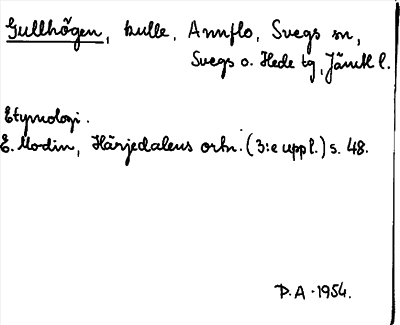 Gullhögen, kulle, Annflo, Svegs sn,
Svegs o. Hede tg, Jämtl l.
Etymologi.
E. Modin, Härjedalens ortn. (3:e uppl.) s. 48.
P.A. 1954.